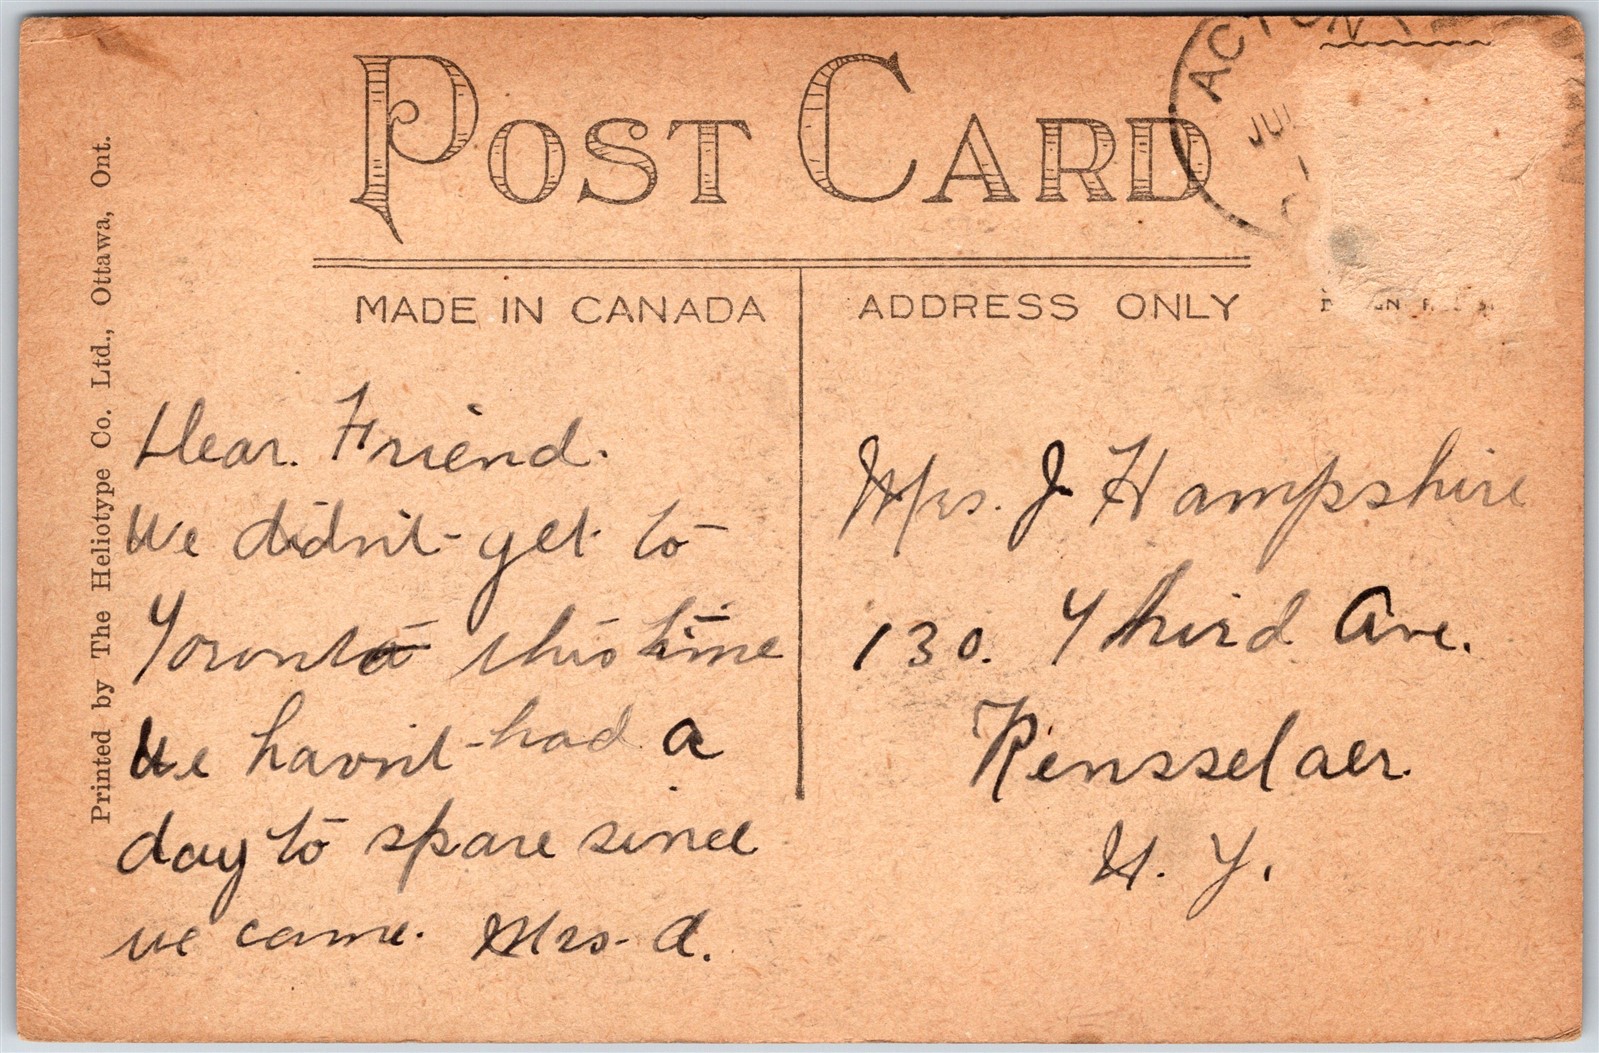 POST CARD
ACTON
JUL
MADE IN CANADA
ADDRESS ONLY
Printed by The Heliotype Co. Ltd., Ottawa, Ont.
Dear Friend.
We didn't get to
Toronto this time
We havn't had a
day to spare since
we came. Mrs. A.
Mrs. J Hampshire
130. Third Ave.
Rensselaer
N. Y.